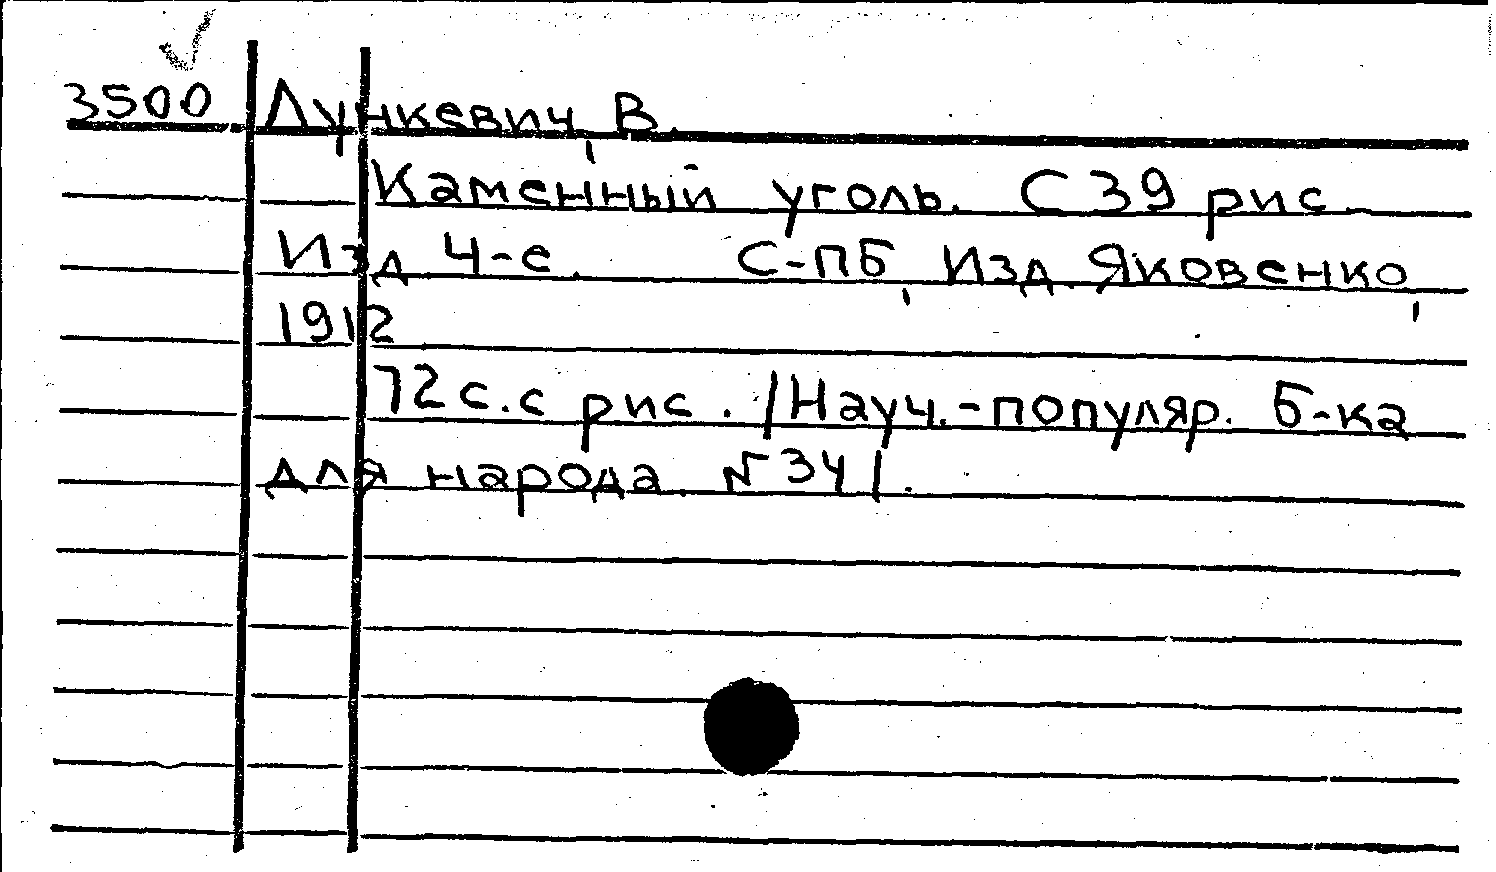 3500 Лункевич, В.
Каменный уголь. С 39 рис.
Изд 4-е. С-ПБ, Изд. Яковенко,
1912
72 с. с рис. /Науч.-популяр. б-ка
для народа. № 34/.